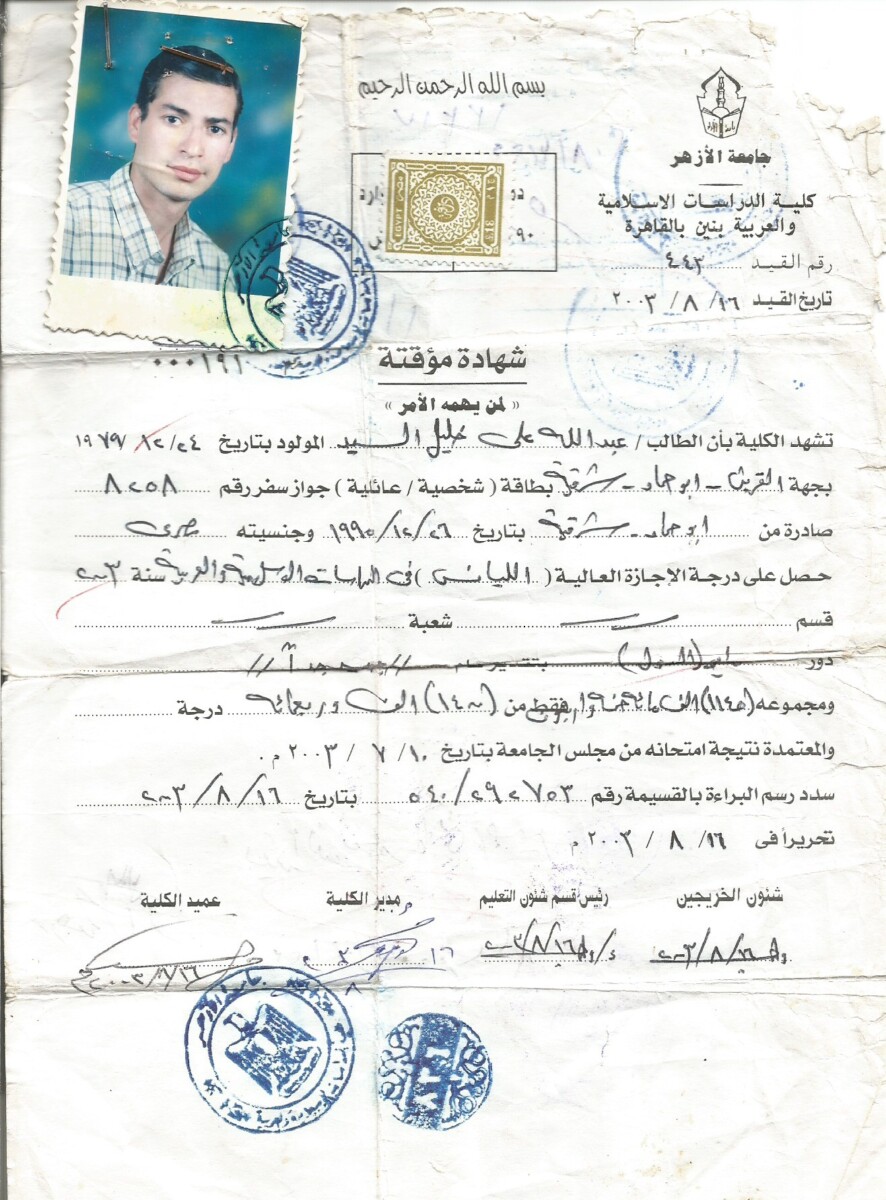 بسم الله الرحمن الرحيم
جامعة الأزهر
كلية الدراسات الاسلامية
والعربية بنين بالقاهرة
رقم القيد ٤٤٣
تاريخ القيد ١٦ / ٨ / ٢٠٠٣
EGYPT
٠٠٠١٩١
شهادة مؤقتة
« لمن يهمه الأمر »
تشهد الكلية بأن الطالب / عبد الله على خليل السيد المولود بتاريخ ٢٤/١٢/١٩٧٩
بجهة القرين - ابو حماد - شرقية بطاقة ( شخصية / عائلية ) جواز سفر رقم ٨٢٥٨
صادرة من ابو حماد - شرقية بتاريخ ٢٦/١٢/١٩٩٥ وجنسيته مصرى
حصل على درجة الإجازة العالية ( الليسانس ) فى الدراسات الاسلامية والعربية سنة ٢٠٠٣
قسم شعبة
دور (الأول) بتقدير عام // جيد جداً //
ومجموعه (١١٤٥) الف مائة خمسة واربعون فقط من (١٤٠٠) الف واربعمائة درجة
والمعتمدة نتيجة امتحانه من مجلس الجامعة بتاريخ ١٠ / ٧ / ٢٠٠٣ م .
سدد رسم البراءة بالقسيمة رقم ٥٤٠/٢٩٢٧٥٣ بتاريخ ١٦/٨/٢٠٠٣
تحريراً فى ١٦/ ٨ / ٢٠٠٣ م
شئون الخريجين رئيس قسم شئون التعليم مدير الكلية عميد الكلية